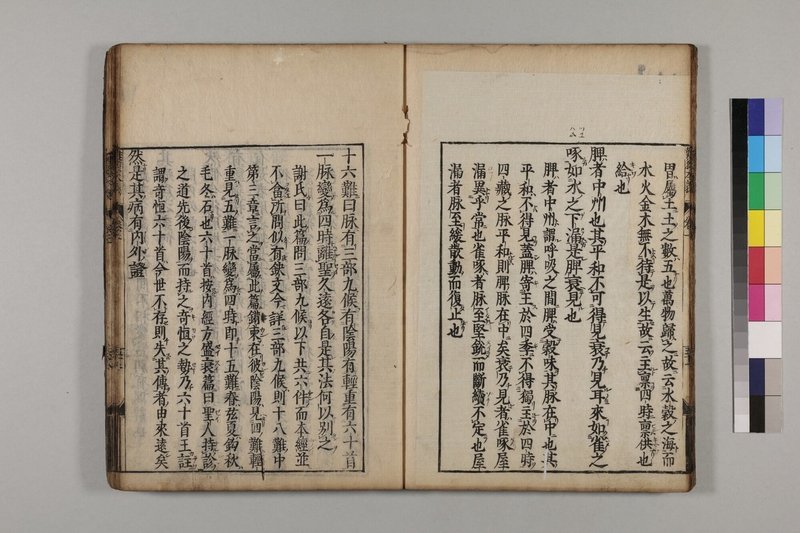 胃屬土土之數五也萬物歸之故云水穀之海而
水火金木無不待是以生故云主禀四時禀供也
給也
脾者中州也其平和不可得見衰乃見耳來如雀之
啄如水之下漏是脾衰見也
脾者中州謂呼吸之間脾受穀味其脉在中也其
平和不得見蓋脾寄王於四季不得獨主於四時
四藏之脉平和則脾脉在中矣衰乃見者雀啄屋
漏異乎常也雀啄者脉至堅銳而斷續不定也屋
漏者脉至緩散動而復止也
十六難曰脉有三部九候有陰陽有輕重有六十首
一脉變爲四時離聖久遠各自是其法何以别之
謝氏曰此篇問三部九候以下共六件而本經並
不荅所問似有缺文今詳三部九候則十八難中
第三章言之當屬此篇錯柬在彼陰陽見四難輕
重見五難一脉變爲四時即十五難春弦夏鈎秋
毛冬石也六十首按内經方盛衰篇曰聖人持診
之道先後陰陽而持之奇恒之勢乃六十首王註
謂奇恒六十首今世不存則失其傳者由來遠矣
然是其病有内外證